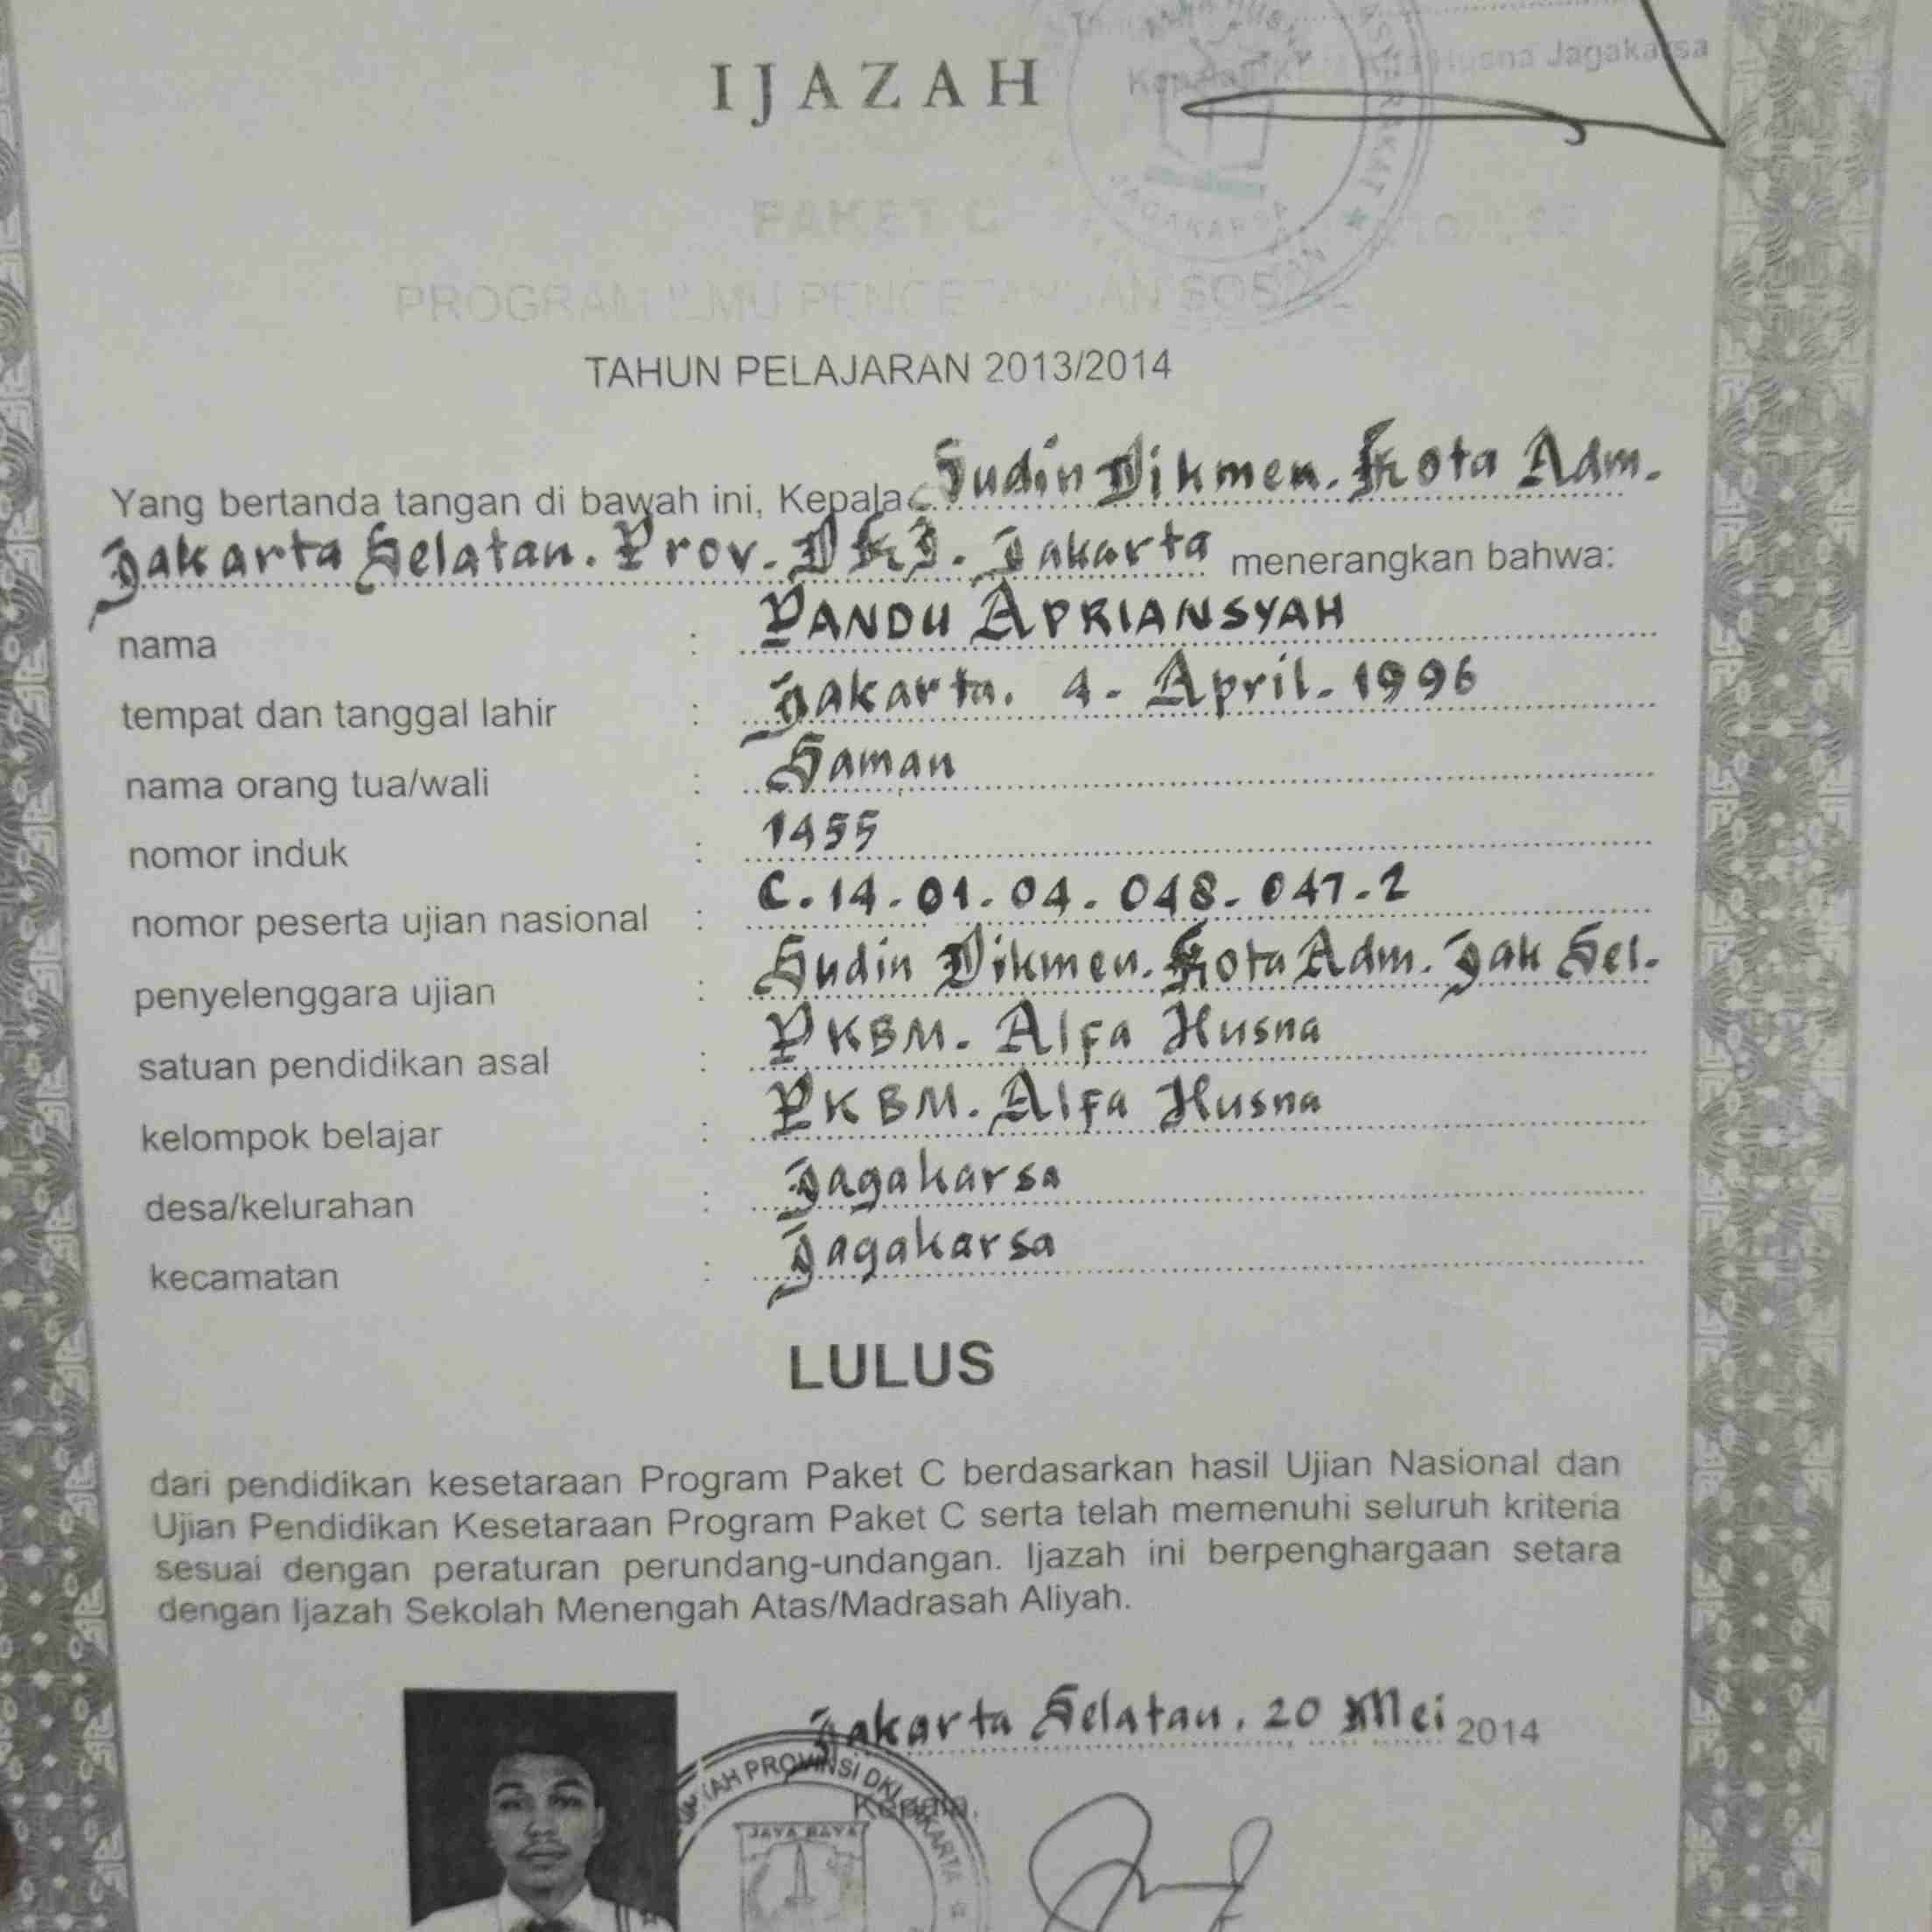 Husna Jagakarsa
IJAZAH
PAKET C
JAGAKARSA
PROGRAM ILMU PENGETAHUAN SOSIAL
TAHUN PELAJARAN 2013/2014
Yang bertanda tangan di bawah ini, Kepala Sudin Dikmen. Kota Adm.
Jakarta Selatan. Prov. DKI. Jakarta menerangkan bahwa:
nama : PANDU APRIANSYAH
tempat dan tanggal lahir : Jakarta. 4 - April - 1996
nama orang tua/wali : Saman
nomor induk : 1455
nomor peserta ujian nasional : C. 14 - 01 - 04 - 048 - 047 - 2
penyelenggara ujian : Sudin Dikmen. Kota Adm. Jak Sel.
satuan pendidikan asal : PKBM. Alfa Husna
kelompok belajar : PKBM. Alfa Husna
desa/kelurahan : Jagakarsa
kecamatan : Jagakarsa
LULUS
dari pendidikan kesetaraan Program Paket C berdasarkan hasil Ujian Nasional dan
Ujian Pendidikan Kesetaraan Program Paket C serta telah memenuhi seluruh kriteria
sesuai dengan peraturan perundang-undangan. Ijazah ini berpenghargaan setara
dengan Ijazah Sekolah Menengah Atas/Madrasah Aliyah.
Jakarta Selatan, 20 Mei 2014
PROVINSI DKI JAKARTA
Kepala,
JAYA RAYA